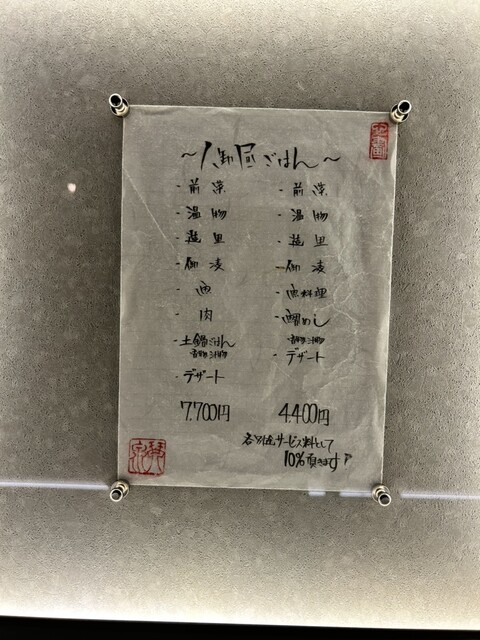 ～人卸昼ごはん～
・前菜
・温物
・造里
・御凌
・魚
・肉
・土鍋ごはん
香物 汁物
・デザート
7.700円
・前菜
・温物
・造里
・御凌
・魚料理
・鯛めし
香物 汁物
・デザート
4.400円
サービス料として
10%頂きます